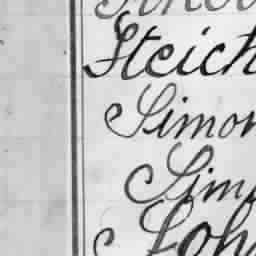 Steich
Simon
Sim
Joh